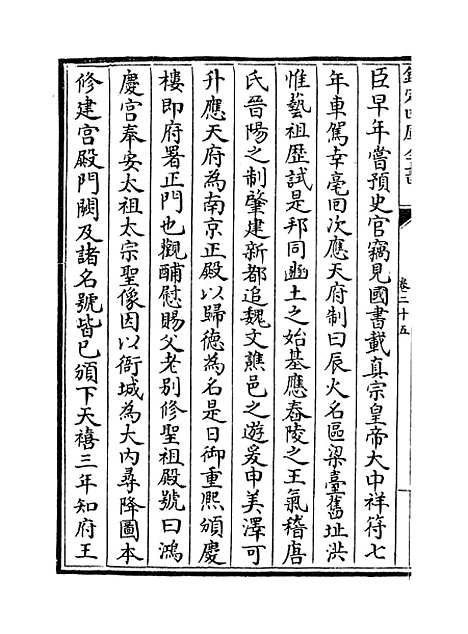 欽定四庫全書
卷二十五
臣早年嘗預史官竊見國書載真宗皇帝大中祥符七
年車駕幸亳回次應天府制曰辰火名區梁臺舊址洪
惟藝祖歴試是邦同豳土之始基應舂陵之王氣稽唐
氏晉陽之制肇建新都追魏文譙邑之遊爰申美澤可
升應天府為南京正殿以歸德為名是日御重熙頒慶
樓即府署正門也觀酺慰賜父老别修聖祖殿號曰鴻
慶宫奉安太祖太宗聖像因以衙城為大内尋降圖本
修建宫殿門闕及諸名號皆已頒下天禧三年知府王